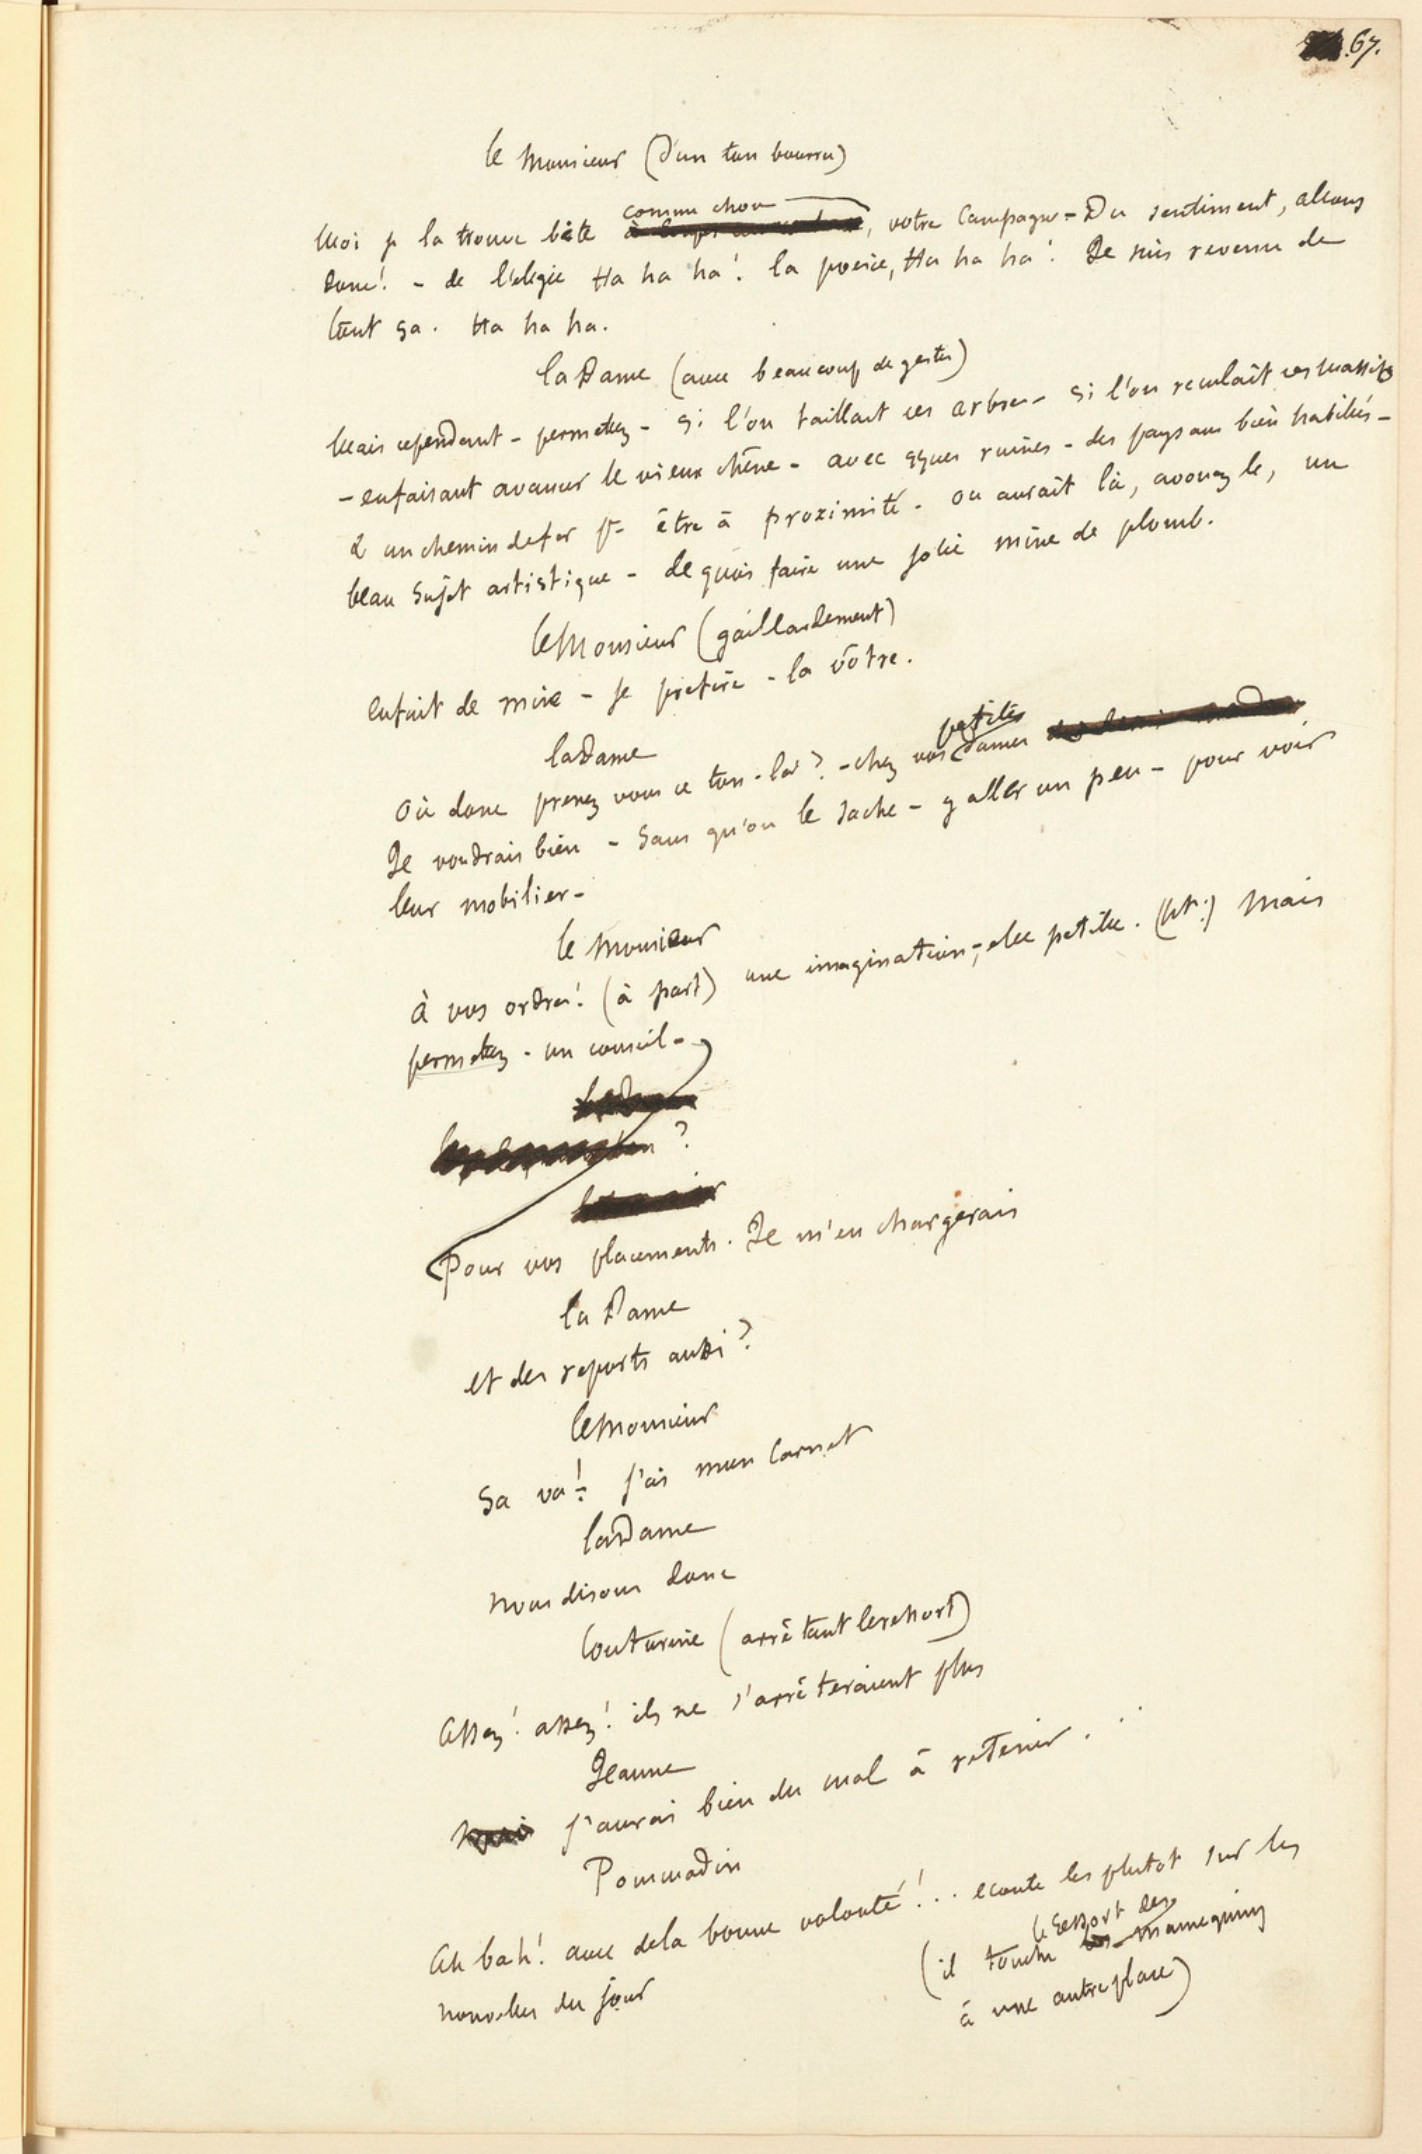 67.
le Monsieur (d'un ton bourru)
comme chou
Moi je la trouve bête à coups , votre campagne - Du sentiment, allons
donc! - de l'élégie Ha ha ha! la poesie, Ha ha ha! Je suis revenu de
tout ça. Ha ha ha.
la Dame (avec beaucoup de gestes)
Mais cependant - permettez - si l'on taillait ces arbres - si l'on reculait ces massifs
- en faisant avancer le vieux chêne - avec qques ruines - des paysans bien habillés -
& un chemin de fer pr être à proximité - on aurait là, avouez le, un
beau sujet artistique - de quoi faire une jolie mine de plomb.
le Monsieur (gaillardement)
en fait de mine - je préfère - la vôtre.
la Dame
petites
Où donc prenez vous ce ton-là? - chez vos dames
Je voudrais bien - sans qu'on le sache - y aller un peu - pour voir
leur mobilier -
le Monsieur
à vos ordres! (à part) une imagination, elle petille. (ht:) Mais
permettez - un conseil -
?
Pour vos placements. Je m'en chargerais
la Dame
et des reports aussi?
le Monsieur
Sa va! j'ai mon carnet
la Dame
nous disons donc
Couturine (arrêtant le ressort)
Assez! assez! ils ne s'arrêteraient plus
Jeanne
Mais j'aurai bien du mal à retenir...
Pommadin
Ah bah! avec de la bonne volonté!.. ecoute les plutot sur les
nouvelles du jour
le ressort des
(il touche les mannequins
à une autre place)